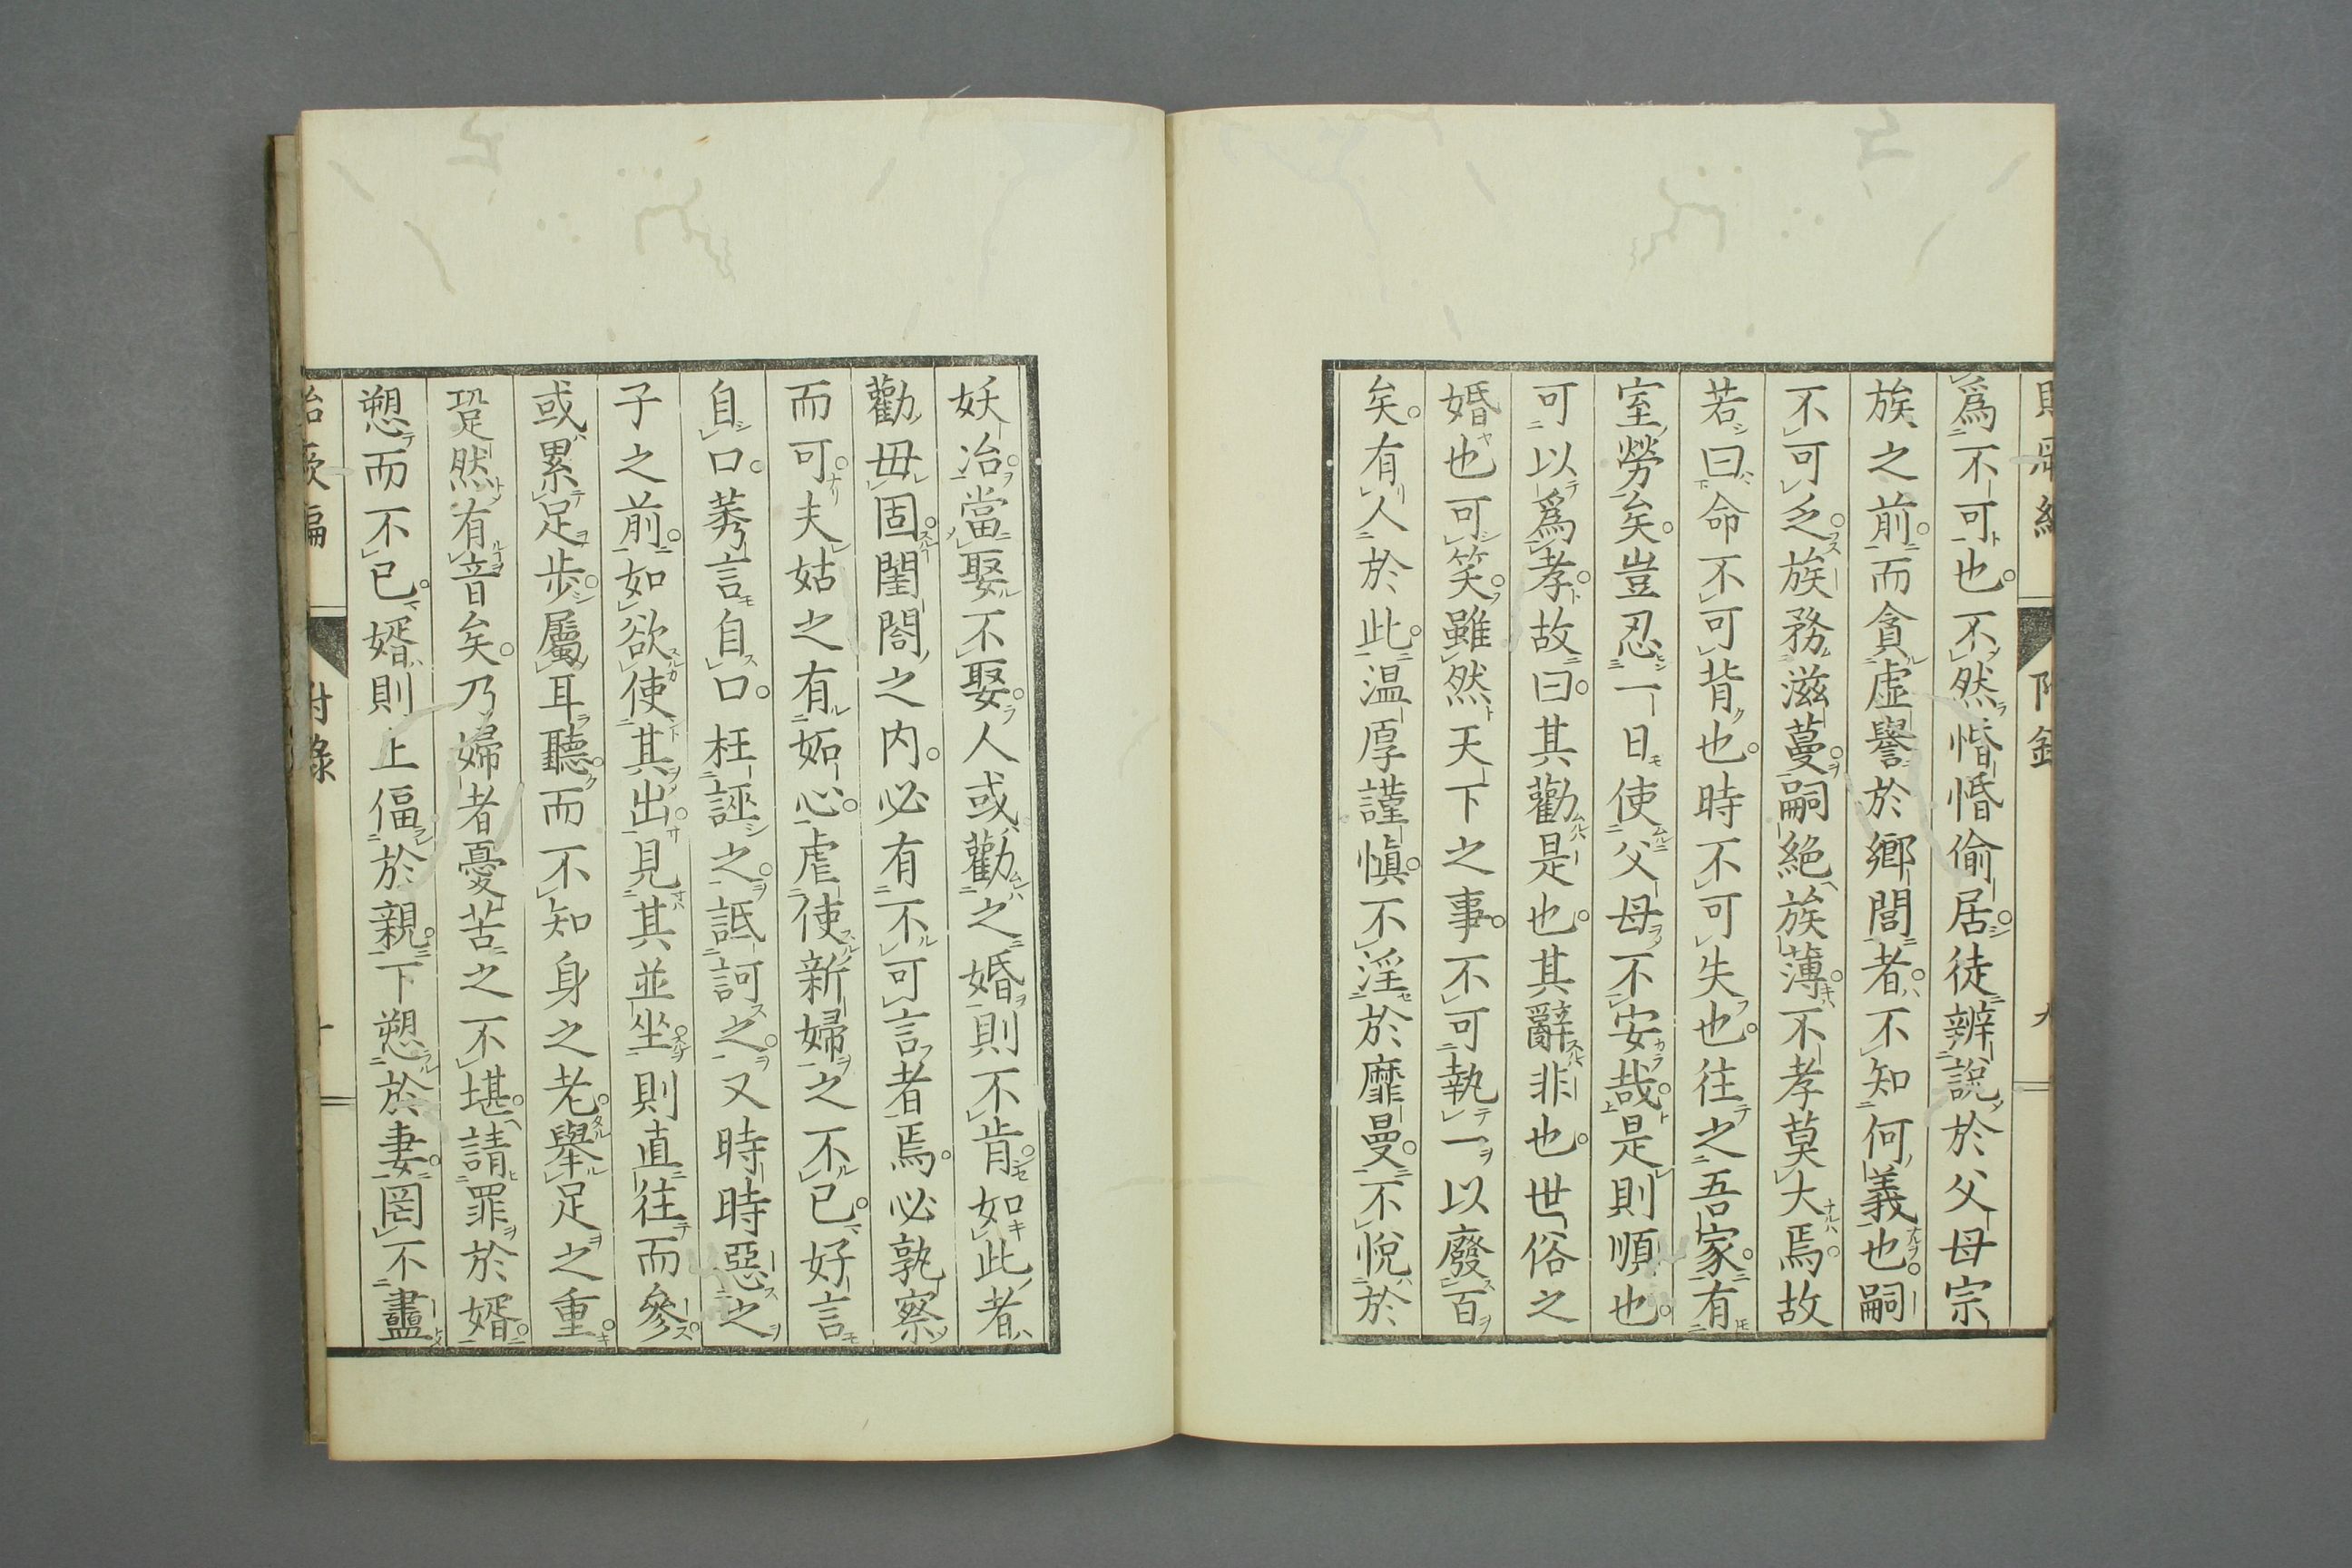 爲不可也不然惛惛偷居徒辨說於父母宗
族之前而貪虛譽於鄉閭者不知何義也嗣
不可乏族務滋蔓嗣絕族薄不孝莫大焉故
若曰命不可背也時不可失也往之吾家有
室勞矣豈忍一日使父母不安哉是則順也
可以爲孝故曰其勸是也其辭非也世俗之
婚也可笑雖然天下之事不可執一以廢百
矣有人於此温厚謹愼不淫於靡曼不悅於
妖冶當娶不娶人或勸之婚則不肯如此者
勸毋固閨閤之内必有不可言者焉必孰察
而可夫姑之有妬心虐使新婦之不已好言
自口莠言自口枉誣之詆訶之又時時惡之
子之前如欲使其出見其並坐則直往而參
或累足步屬耳聽而不知身之老舉足之重
跫然有音矣乃婦者憂苦之不堪請罪於婿
愬而不已婿則上偪於親下愬於妻罔不衋
治厥編
附錄
十